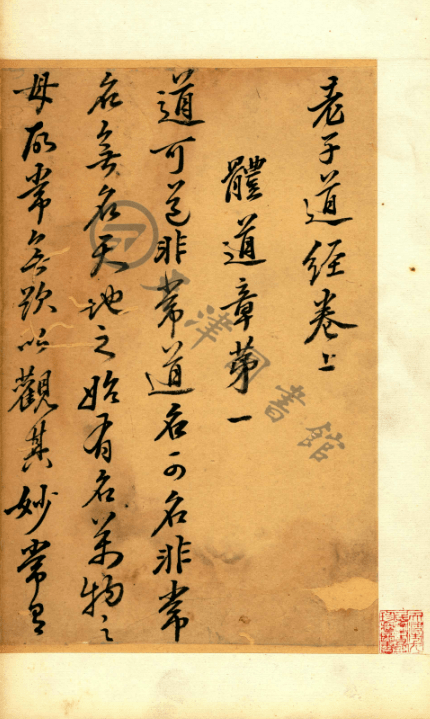 老子道經卷上
體道章第一
道可道非常道名可名非常
名無名天地之始有名萬物之
母故常無欲以觀其妙常有
津圖書館